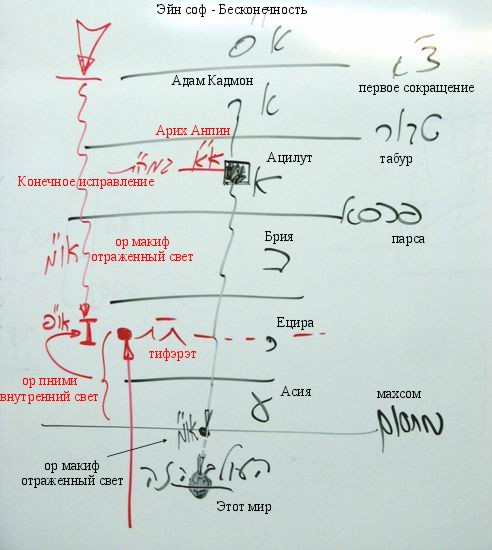 Эйн соф - Бесконечность
א"ס
Адам Кадмон
צ"א
первое сокращение
א
Арих Анпин
טבור
Ацилут
табур
א"א
Конечное исправление
א
פרסא
парса
ор макиф
отраженный свет
או"מ
Брия
ב
או"פ
Ецира
ת"ת
тифэрэт
י
ор пними
внутренний свет
Асия
ע
махсом
מחסום
או"מ
ор макиф
отраженный свет
העולם הזה
Этот мир